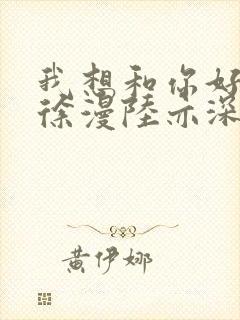 我想和你好
徐漫陸亦深
黄伊娜